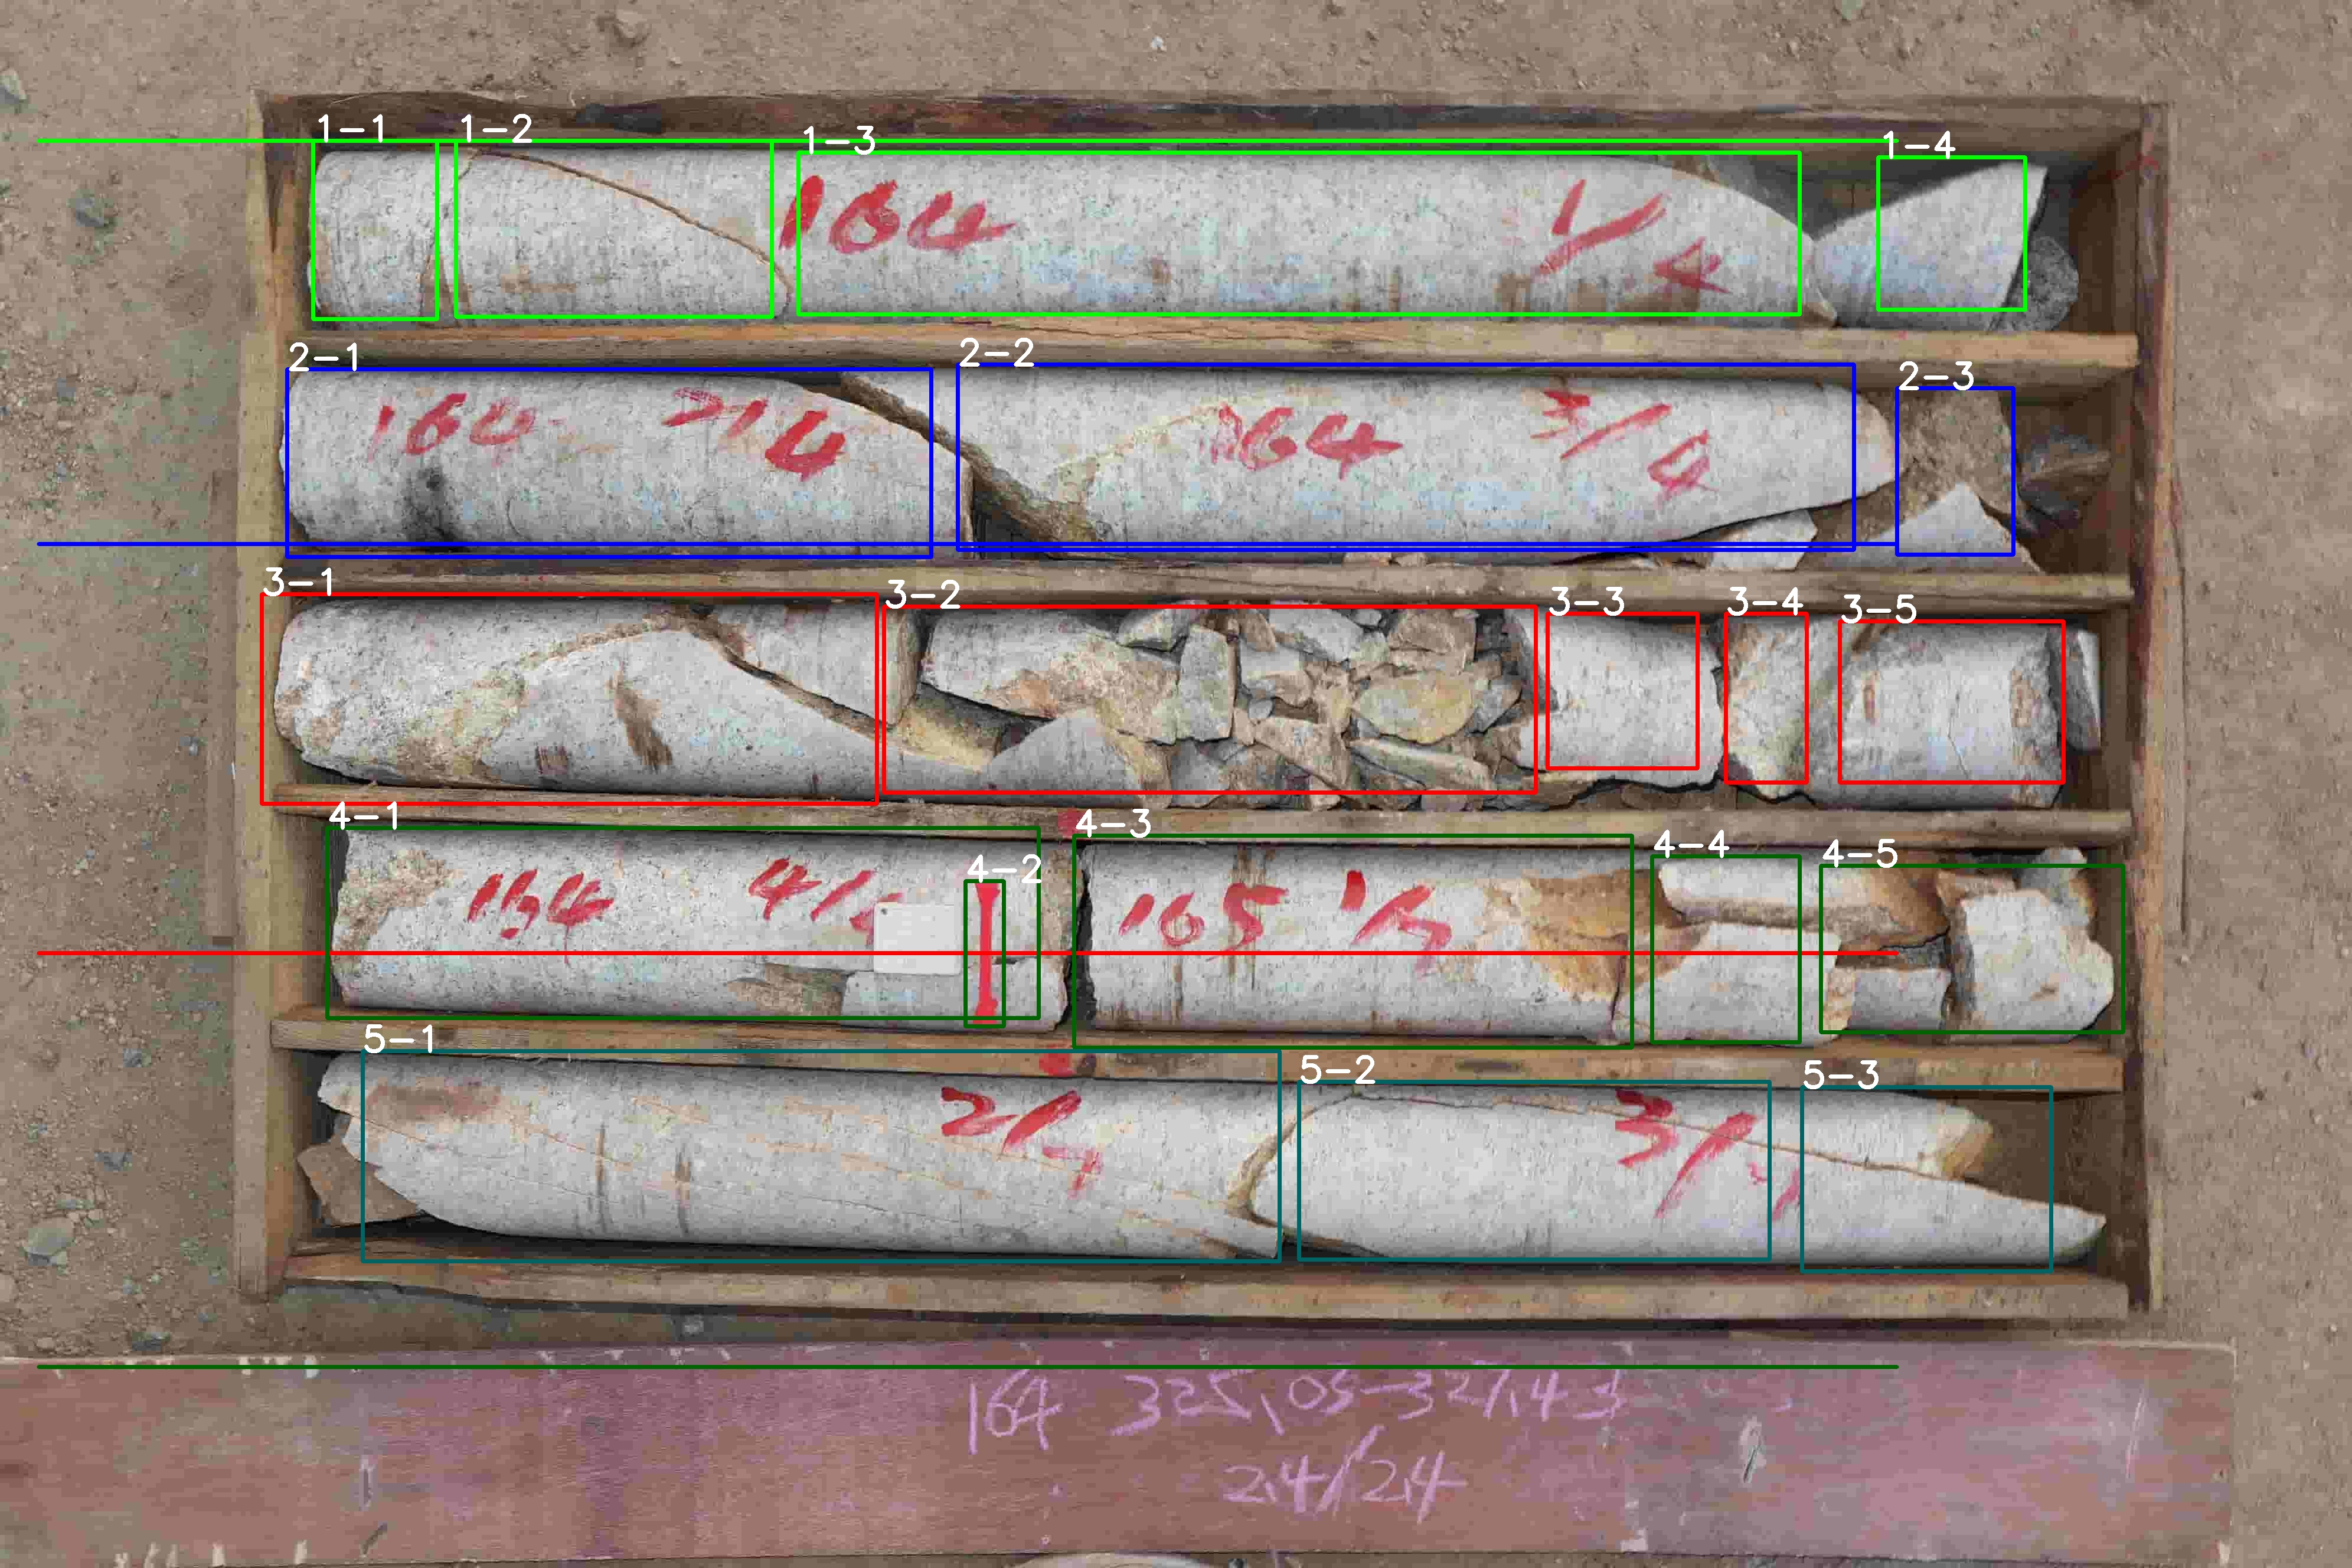 1-1 1-2 1-3 1-4
164 1/4
2-1 2-2 2-3
164 2/4 164 3/4
3-1 3-2 3-3 3-4 3-5
4-1 4-2 4-3 4-4 4-5
164 4/4 165 1/7
5-1 5-2 5-3
2/7 3/7
164 325.03-327.43
2.4/2.4